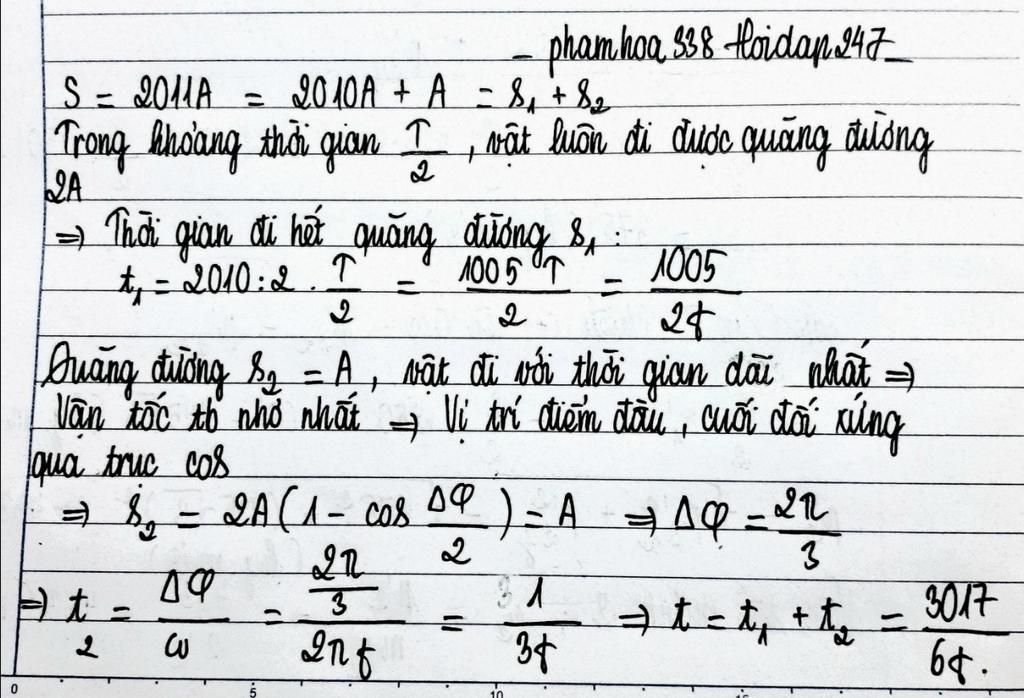 - phamhoa 338 Hoidap247 -
S = 2011A = 2010A + A = s₁ + s₂
Trong khoảng thời gian T/2, vật luôn đi được quãng đường
2A
⇒ Thời gian đi hết quãng đường s₁:
t₁ = 2010:2 . T/2 = 1005T/2 = 1005/2f
Quãng đường s₂ = A, vật đi với thời gian dài nhất ⇒
Vận tốc tb nhỏ nhất ⇒ Vị trí điểm đầu, cuối đối xứng
qua trục cos
⇒ s₂ = 2A(1 - cos Δφ/2) = A ⇒ Δφ = 2π/3
⇒ t₂ = Δφ/ω = (2π/3)/(2πf) = 1/3f ⇒ t = t₁ + t₂ = 3017/6f.
0 5 10 15